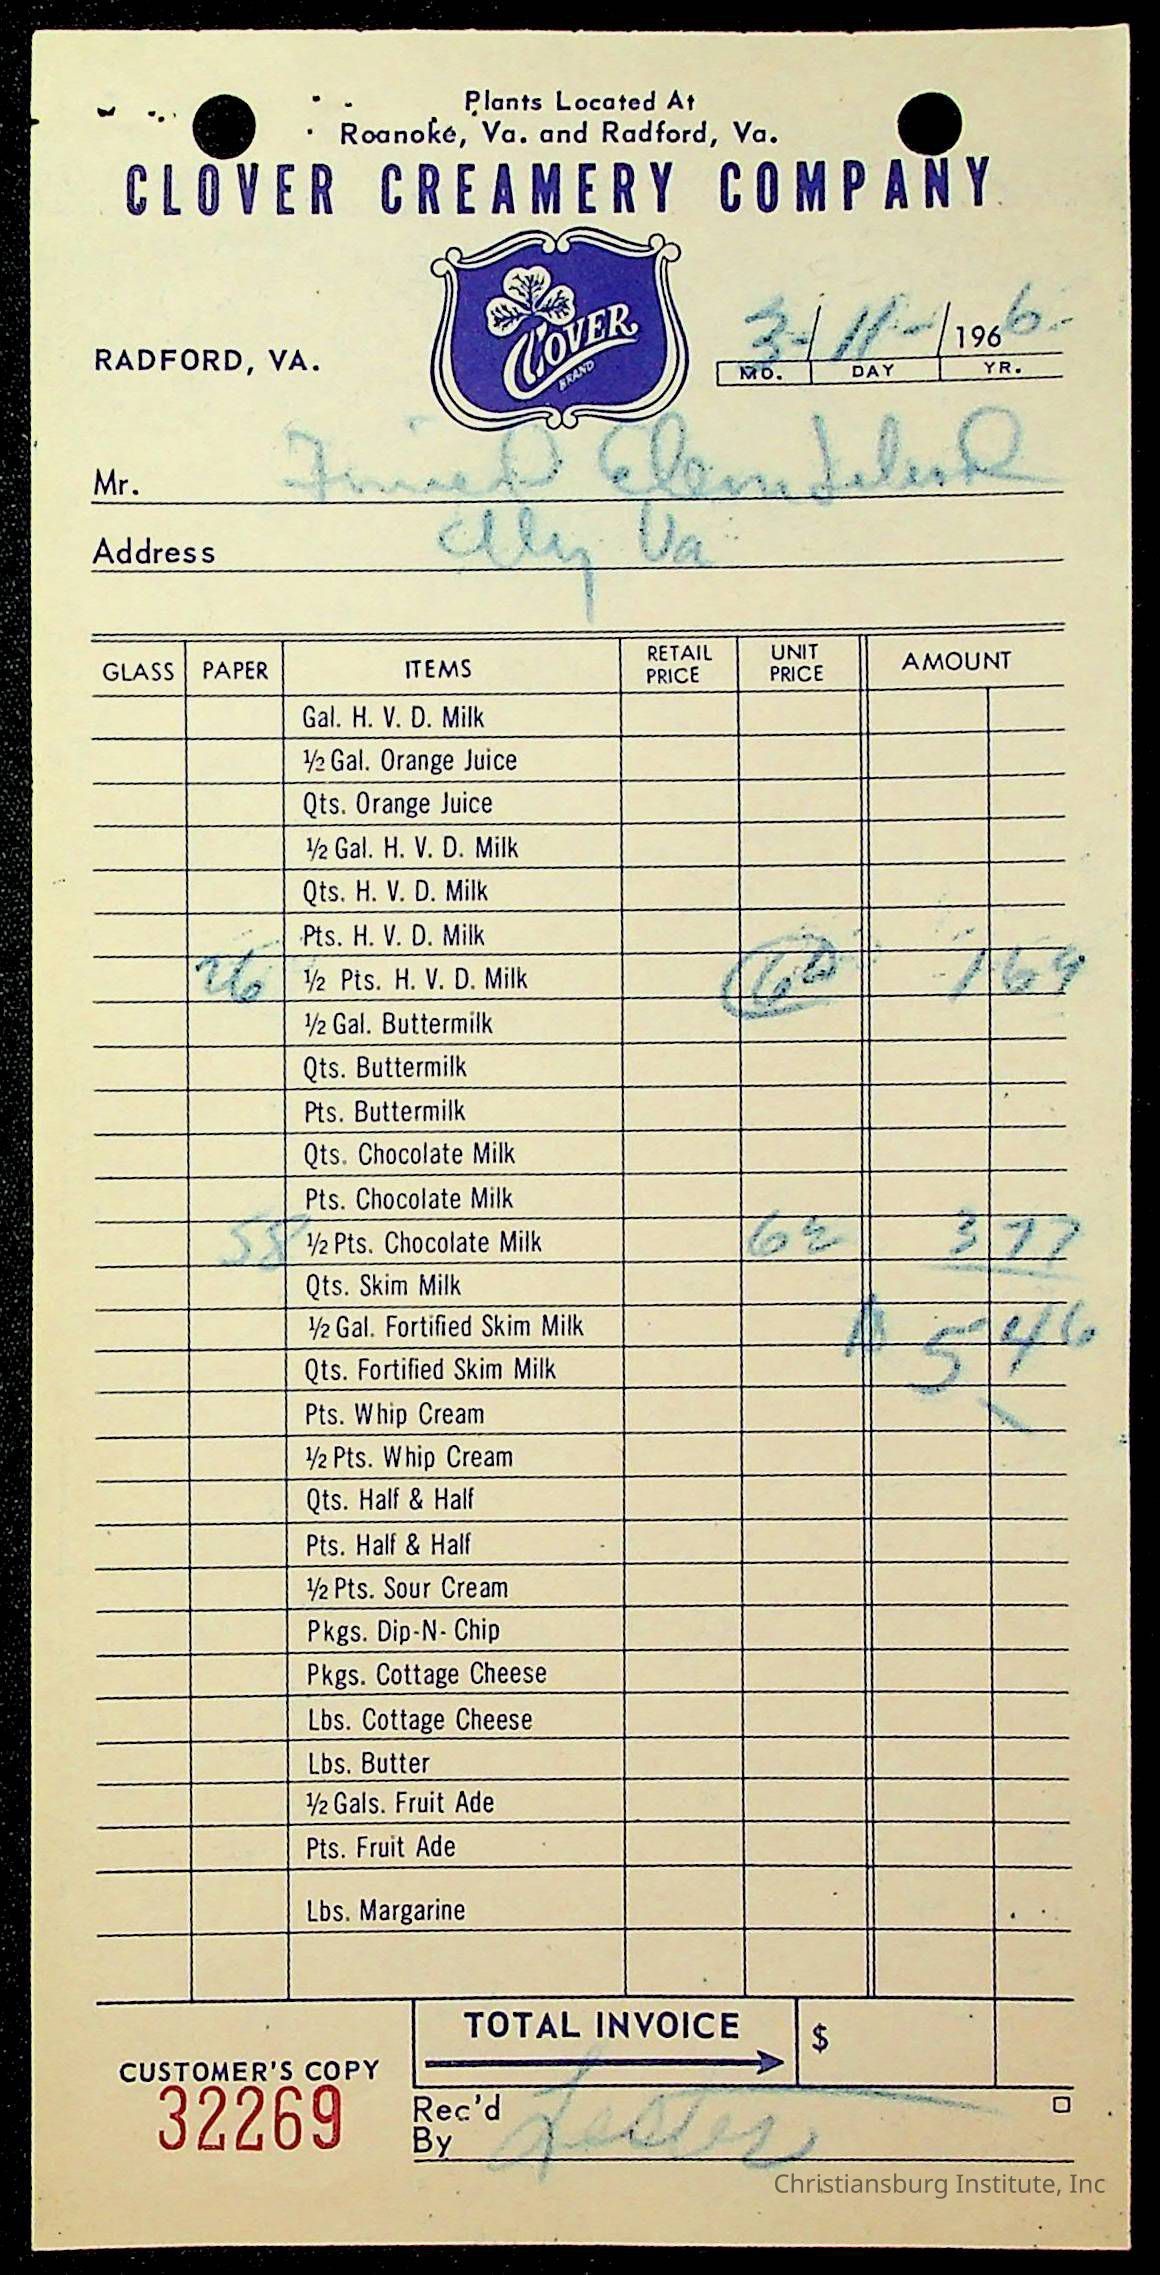 Plants Located At
Roanoke, Va. and Radford, Va.
CLOVER CREAMERY COMPANY
CLOVER
BRAND
RADFORD, VA.
3-/11-/1966-
MO. DAY YR.
Mr. Elem School
Address Va
GLASS PAPER ITEMS RETAIL PRICE UNIT PRICE AMOUNT
Gal. H. V. D. Milk
½ Gal. Orange Juice
Qts. Orange Juice
½ Gal. H. V. D. Milk
Qts. H. V. D. Milk
Pts. H. V. D. Milk
26 ½ Pts. H. V. D. Milk 1 69
½ Gal. Buttermilk
Qts. Buttermilk
Pts. Buttermilk
Qts. Chocolate Milk
Pts. Chocolate Milk
58 ½ Pts. Chocolate Milk 6½ 3 77
Qts. Skim Milk
½ Gal. Fortified Skim Milk 5 46
Qts. Fortified Skim Milk
Pts. Whip Cream
½ Pts. Whip Cream
Qts. Half & Half
Pts. Half & Half
½ Pts. Sour Cream
Pkgs. Dip-N-Chip
Pkgs. Cottage Cheese
Lbs. Cottage Cheese
Lbs. Butter
½ Gals. Fruit Ade
Pts. Fruit Ade
Lbs. Margarine
TOTAL INVOICE $
CUSTOMER'S COPY
32269
Rec'd By Lester
Christiansburg Institute, Inc